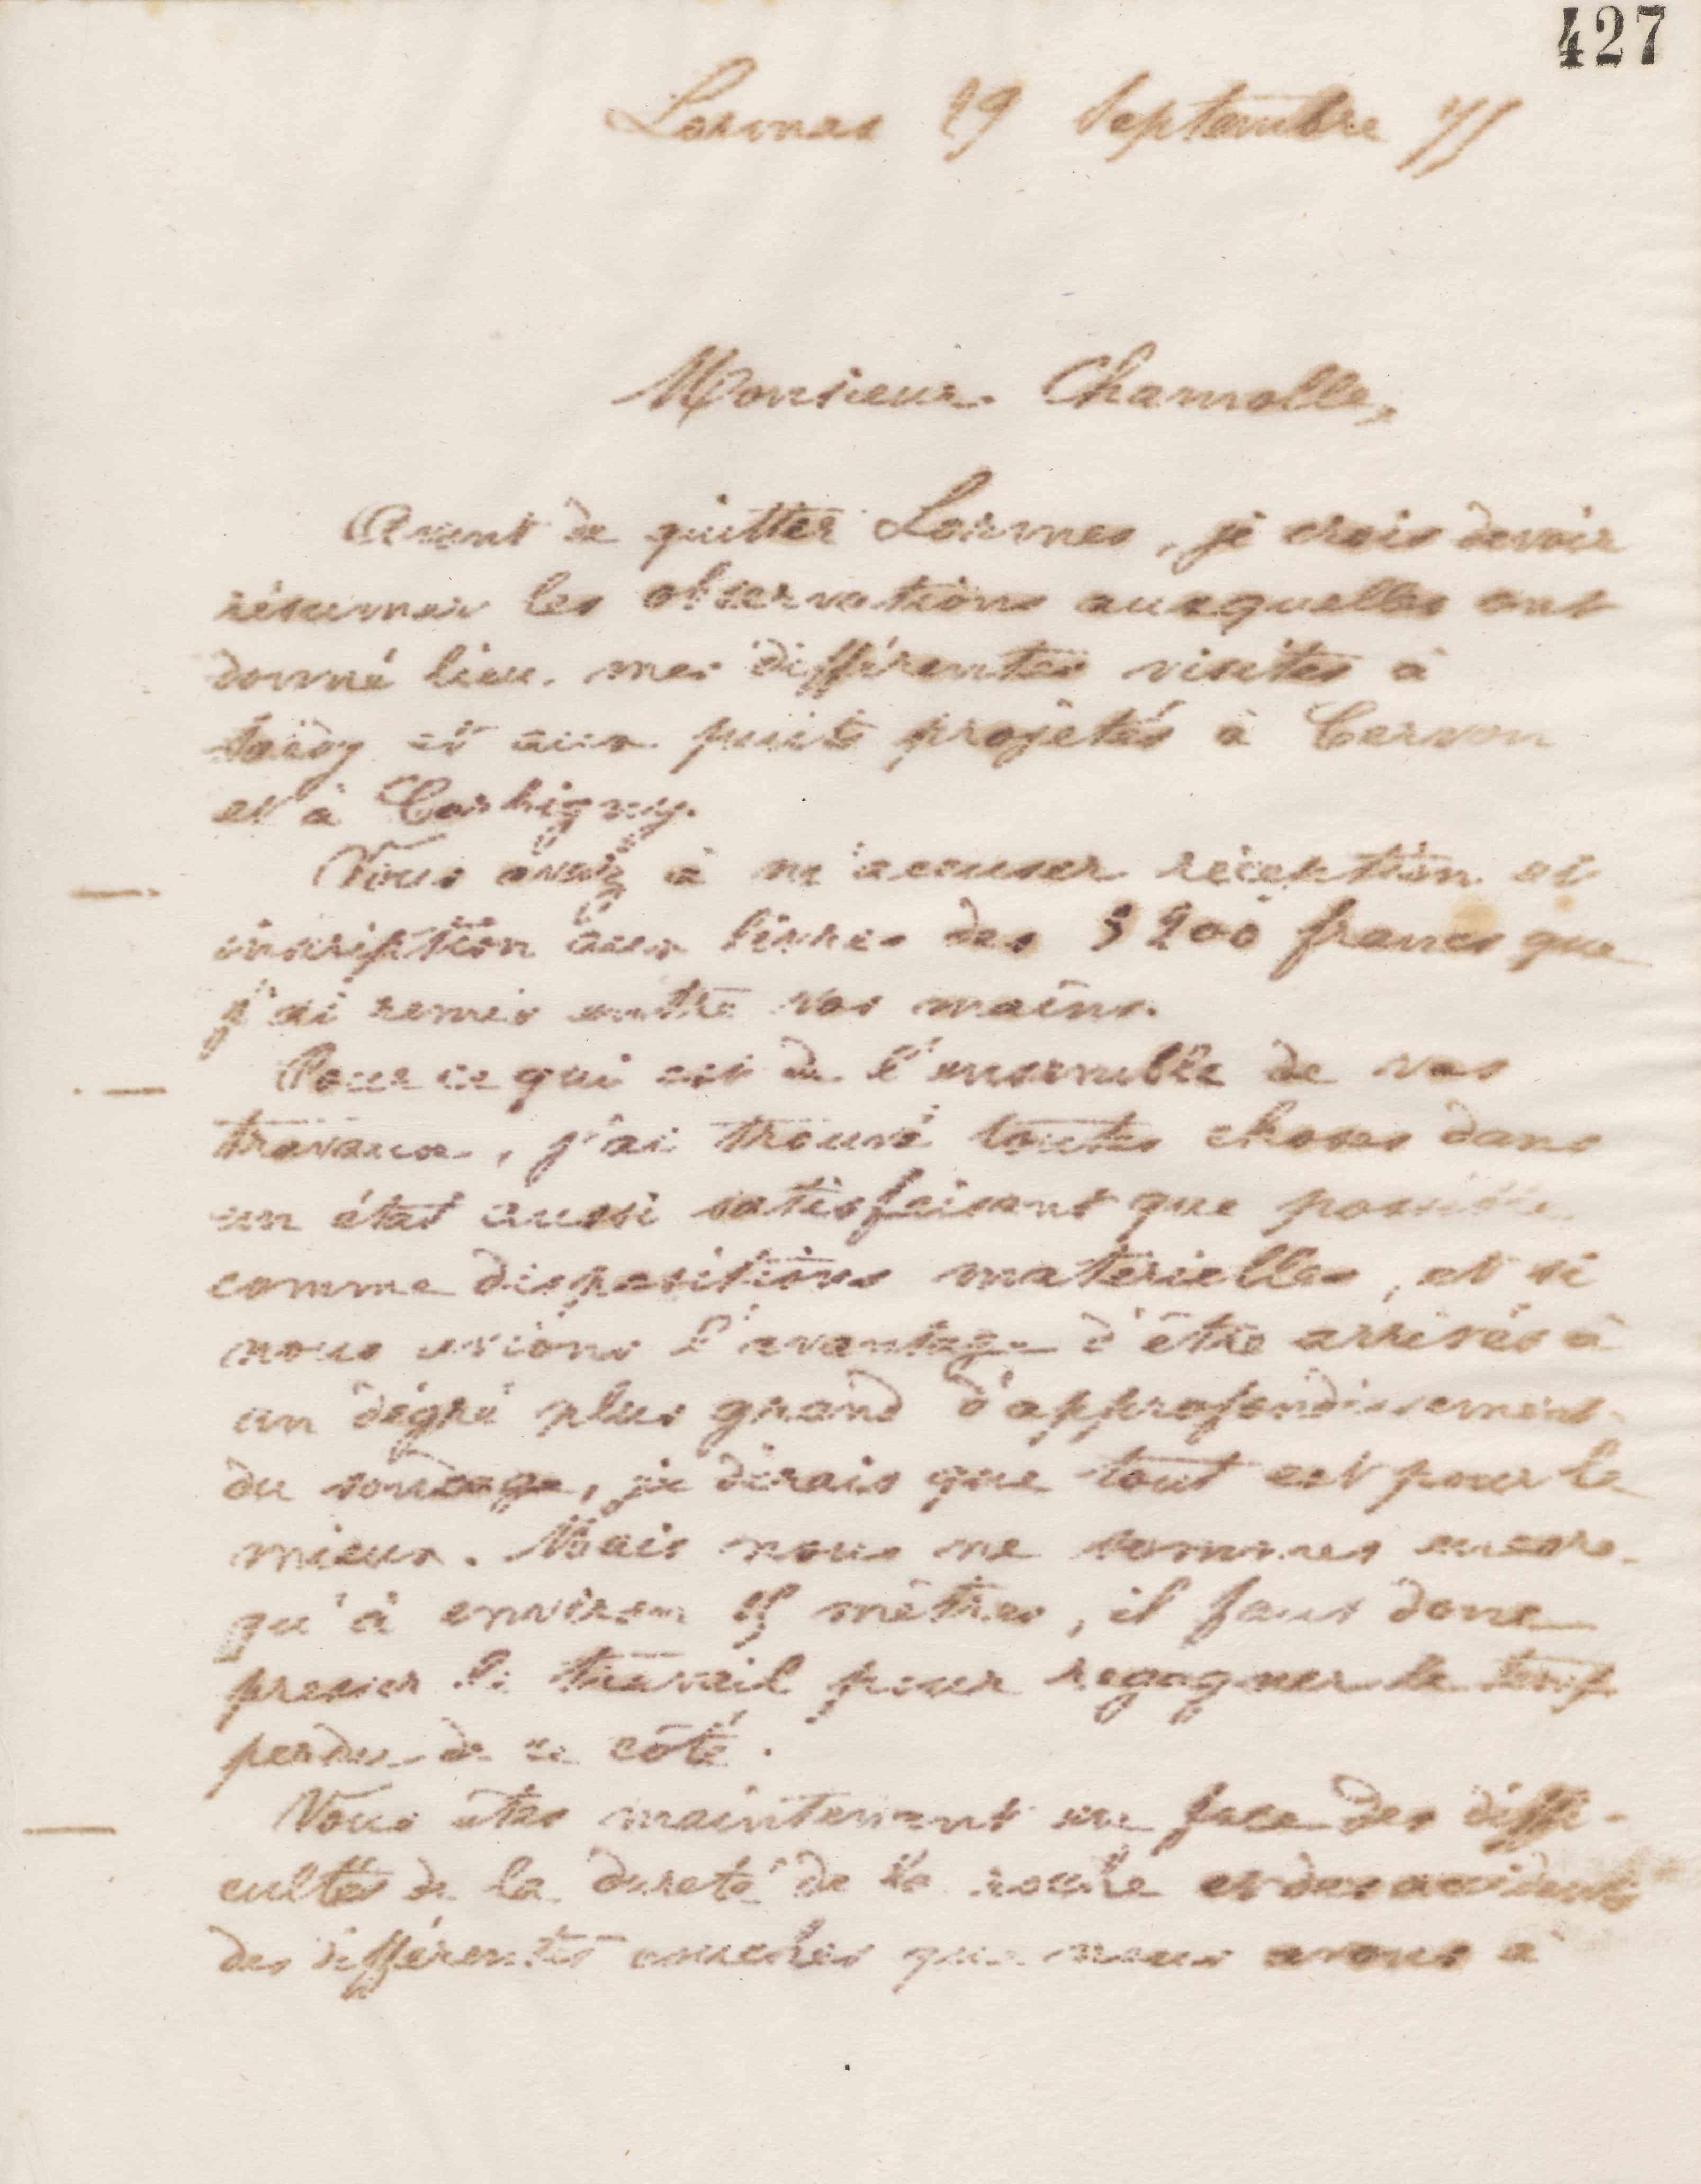 427
Lormes 29 Septembre 75
Monsieur Chamolle,
Avant de quitter Lormes, je crois devoir
résumer les observations auxquelles ont
donné lieu mes différentes visites à
et aux puits projetés à Cervon
et à Corbigny.
Vous avez à m'accuser réception et
inscription aux livres des 3200 francs que
j'ai remis entre vos mains.
Pour ce qui est de l'ensemble de vos
travaux, j'ai trouvé toutes choses dans
un état aussi satisfaisant que possible
comme dispositions matérielles, et si
nous avions l'avantage d'être arrivés à
un dégré plus grand d'approfondissement
du sondage, je dirais que tout est pour le
mieux. Mais nous ne sommes encore
qu'à environ mètres, il faut donc
presser le travail pour regagner le temps
perdu de ce côté.
Vous êtes maintenant en face des diffi-
cultés de la dureté de la roche et des accidents
des différentes couches que nous avons à